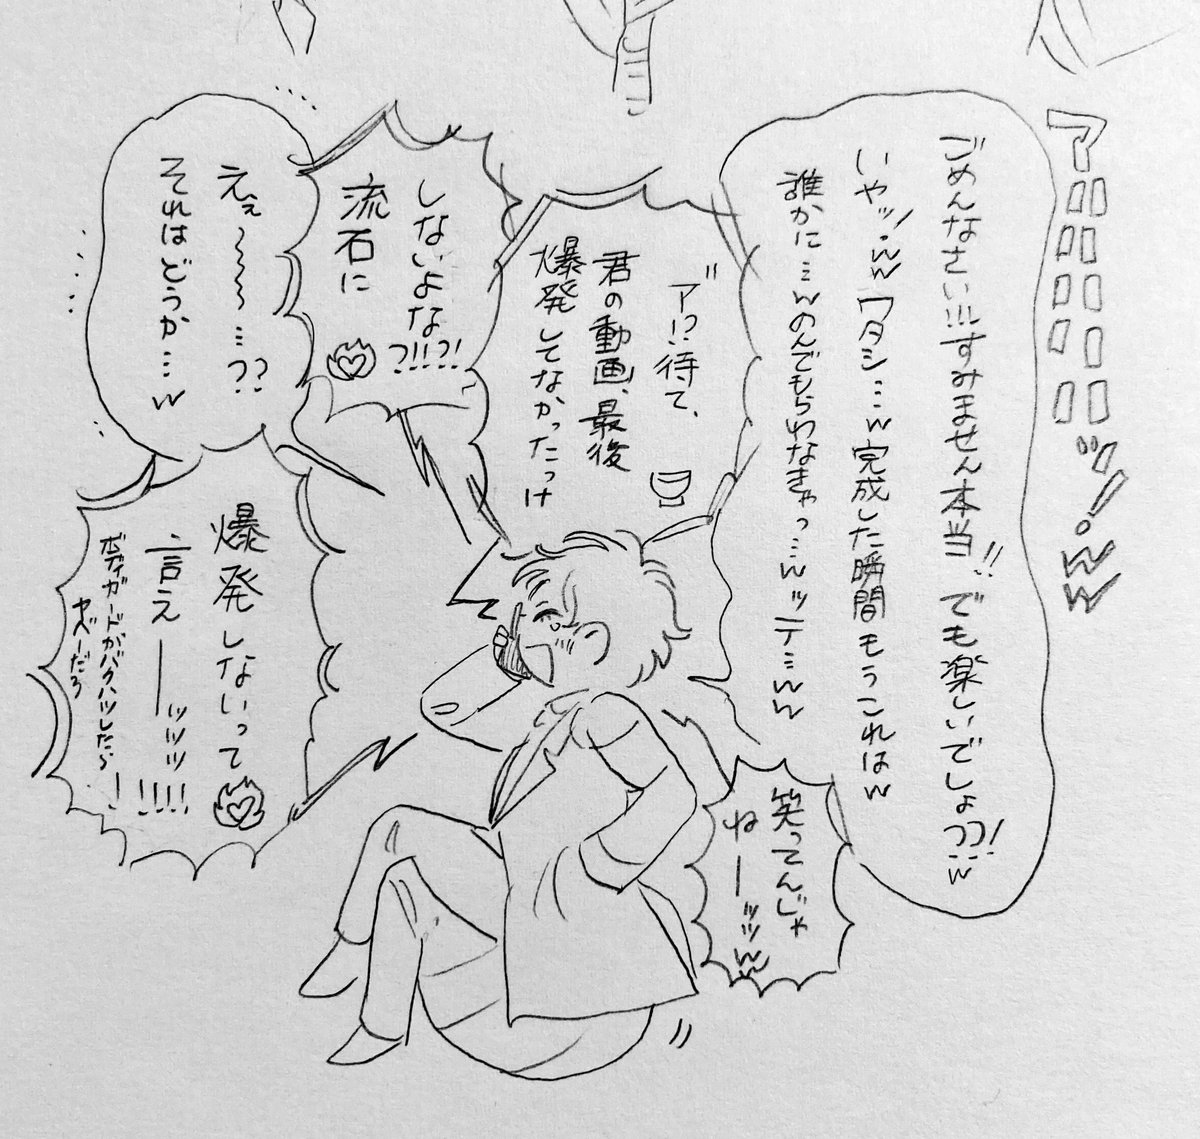 アハハハハハハハッ！。ww
ごめんなさい!!!すみません本当!!。でも楽しいでしょ??!w
いやッ!。ww ワタシ…w完成した瞬間もうこれはw
誰かに…wのんでもらわなきゃっ…wッテ…ww
笑ってんじゃ
ねーッッww
ア゛!?待て、
君の動画、最後
爆発してなかったっけ
しないよな?!!?!
流石に
えぇ〜〜〜…??
それはどうか…w
爆発しないって
言えーッッッ!!!!
ボディガードがバクハツしたら
ヤベーだろ!